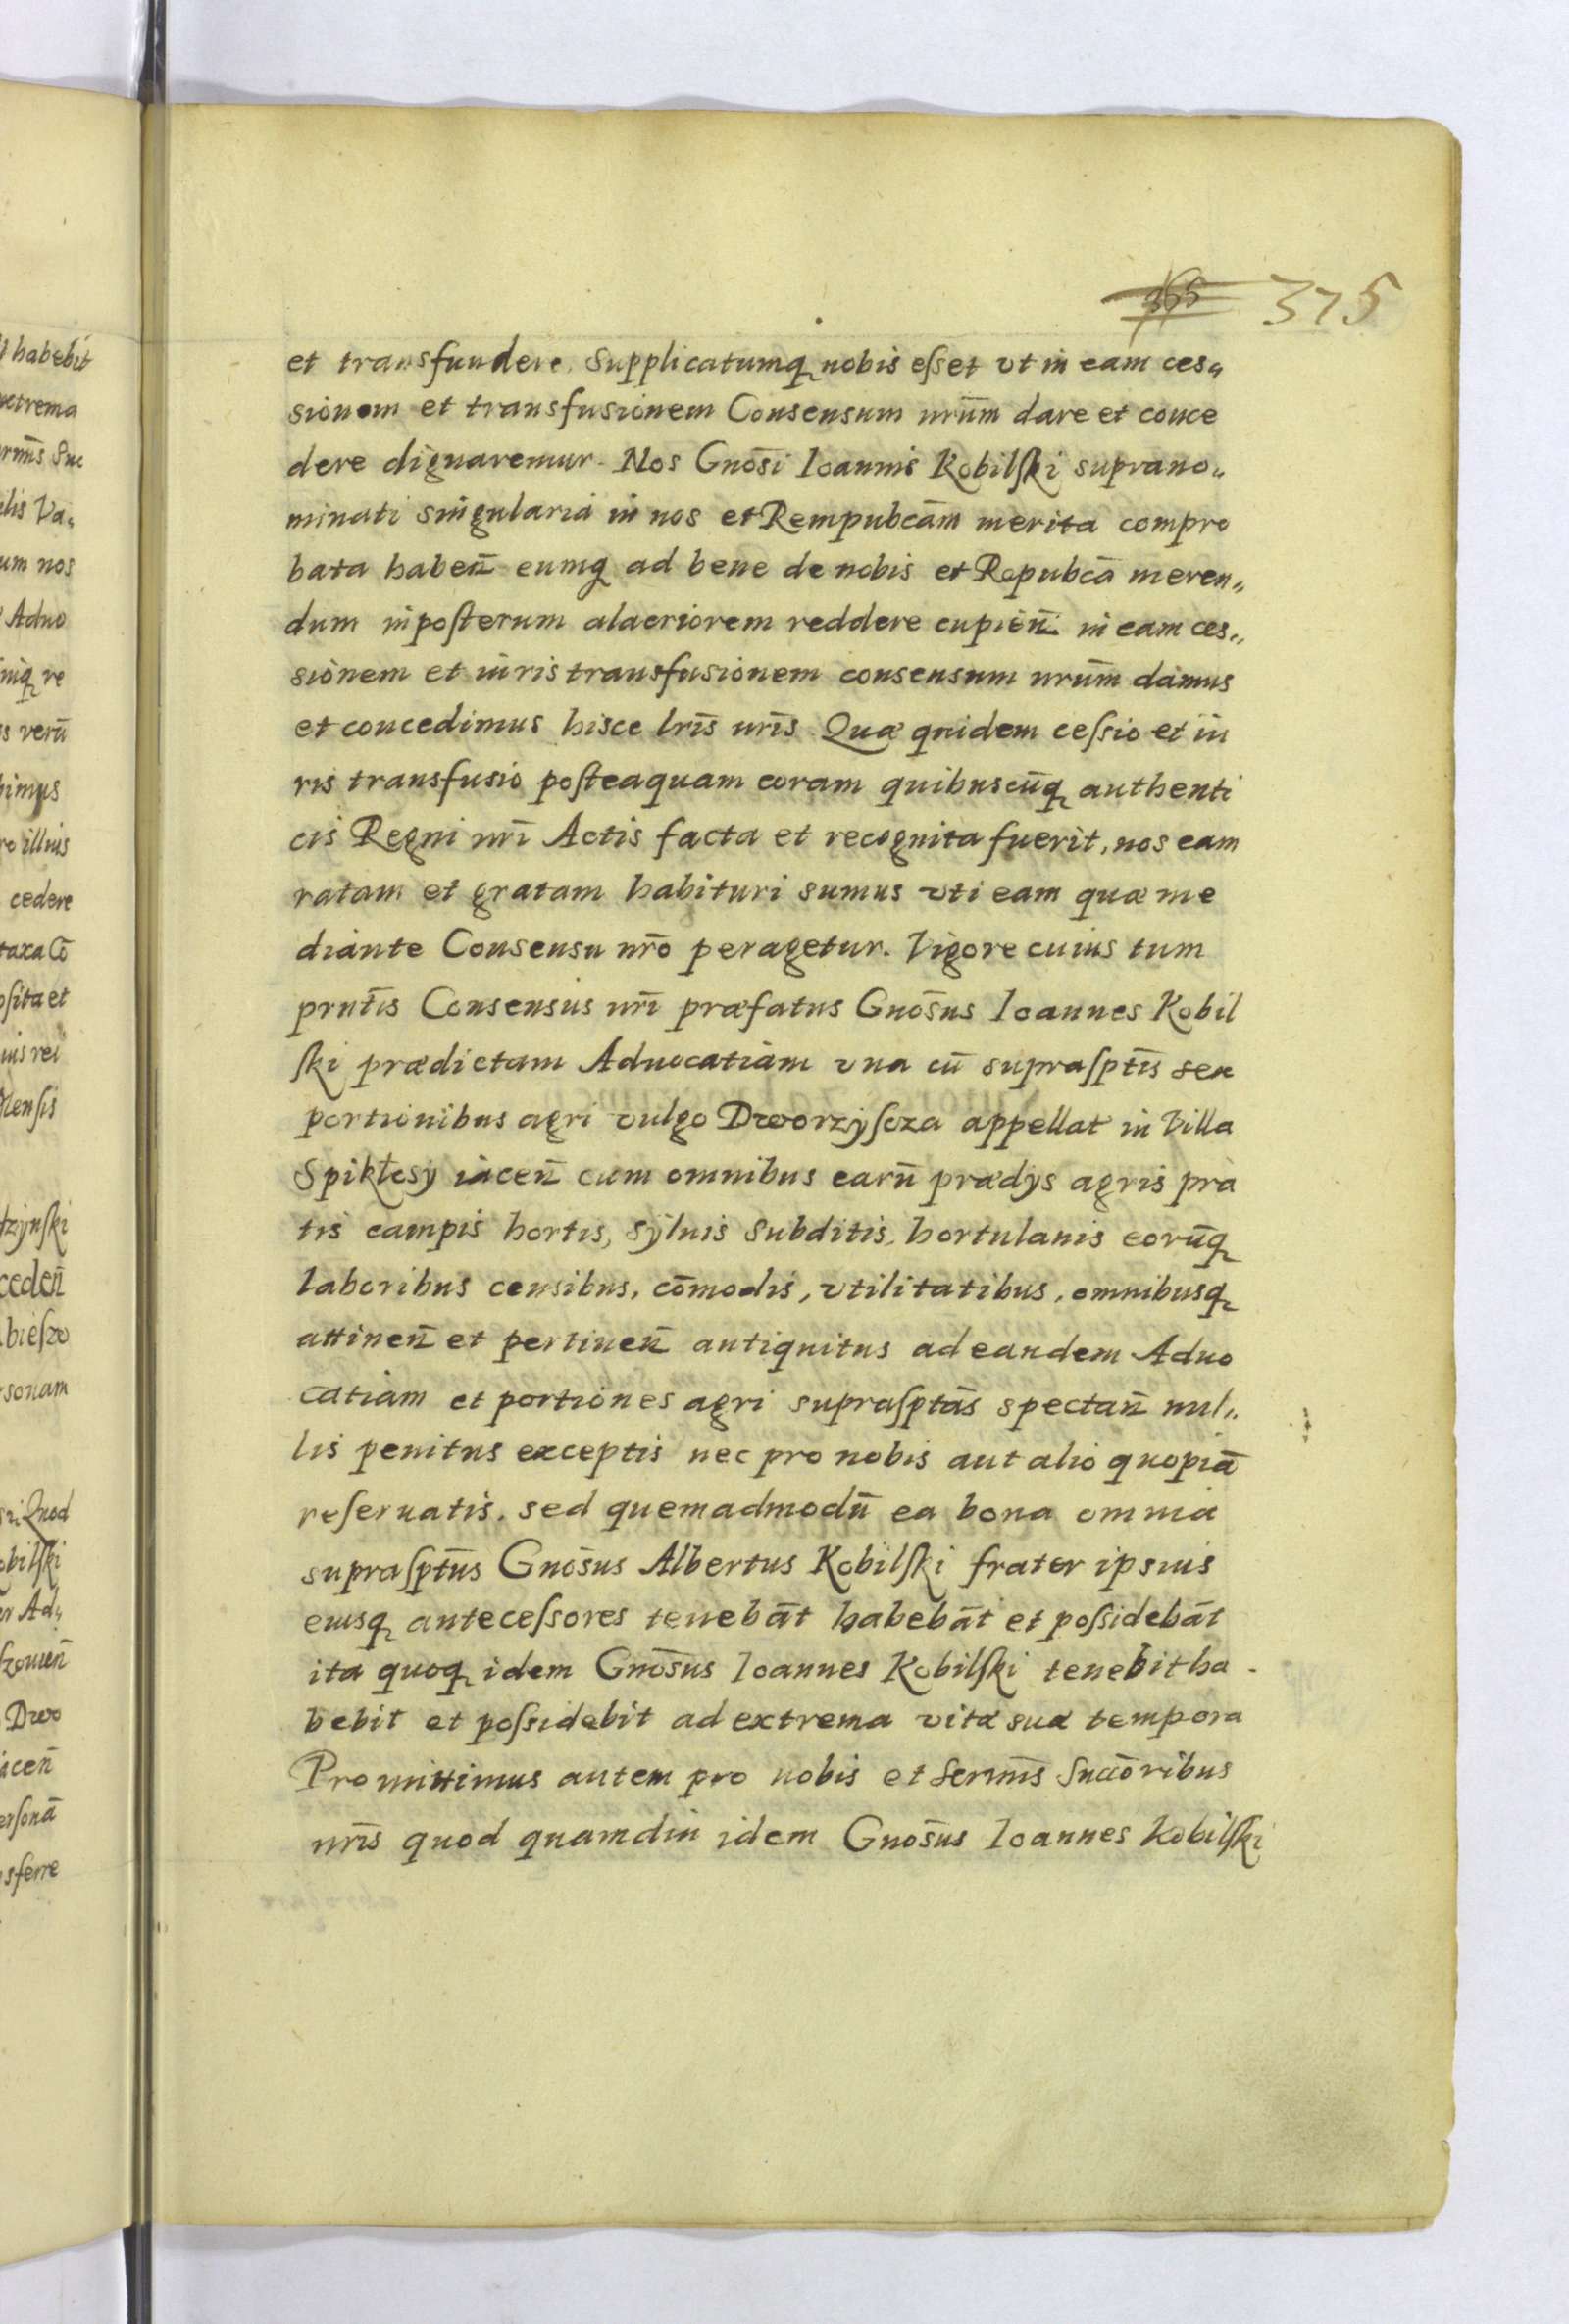 365 375
et transfundere. Supplicatumq nobis eſset vt in eam ces„
sionem et transfusionem Consensum nrūm dare et conce
dere dignaremur. Nos Gnōsi Ioannis Kobilſki suprano„
minati singularia in nos et Rempubcām merita compro
bata habeñ eumq ad bene de nobis et Repubcā meren„
dum inpoſterum alacriorem reddere cupieñ in eam ces„
sionem et iuris transfusionem consensum nrūm damus
et concedimus hisce lrīs nrīs Quæ quidem ceſsio et iu
ris transfusio poſteaquam coram quibuscūq authenti
cis Regni nrī Actis facta et recognita fuerit, nos eam
ratam et gratam habituri sumus vti eam quæ me
diante Consensu nrō peragetur. Vigore cuius tum
prntīs Consensus nrī præfatus Gnōsus Ioannes Kobil
ſki prædictam Aduocatiam vna cū supraſptīs sex
portionibus agri vulgo Dworzyſcza appellat in Villa
Spiktesÿ iaceñ cum omnibus earū prædÿs agris pra
tis campis hortis, sÿluis subditis, hortulanis eorūq
laboribus censibus, cōmodis, vtilitatibus, omnibusq
attineñ et pertineñ antiquitus ad eandem Aduo
catiam et portiones agri supraſptās spectañ nul„
lis penitus exceptis nec pro nobis aut alio quopiā
reſeruatis. sed quemadmodū ea bona omnia
supraſptūs Gnōsus Albertus Kobilſki frater ipsius
eiusq anteceſsores tenebāt habebāt et poſsidebāt
ita quoq idem Gnōsus Ioannes Kobilſki tenebit ha-
bebit et poſsidebit ad extrema vitæ suæ tempora
Promittimus autem pro nobis et Sermīs Succōribus
nrīs quod quamdiu idem Gnōsus Ioannes Kobilſki